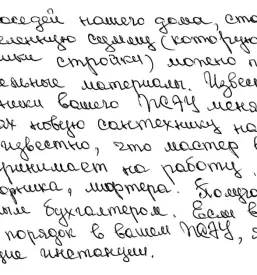 соседей нашего дома, сто
еленную сделку (которую
ики стройки) можно п
ельные материалы. Извес
ники вашего ПСДУ меня
ах новую сантехнику на
известно, что мастер в
ринимает на работу
орника, мортера. Получа
ым бухгалтером. Если в
порядок в вашем ПСДУ, я
щие инстанции.